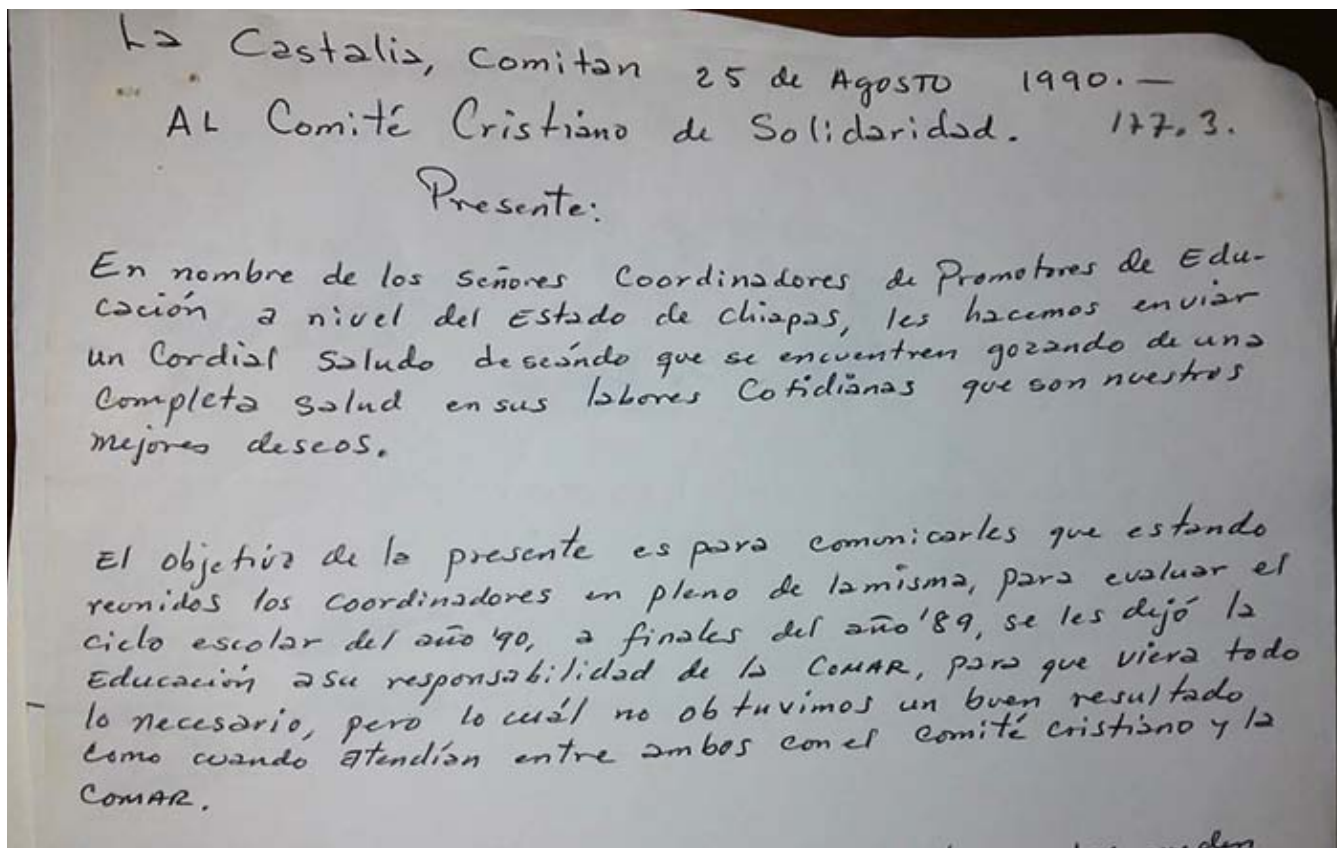 La Castalia, Comitan 25 de Agosto 1990.—
AL Comité Cristiano de Solidaridad. 177.3.
Presente:
En nombre de los Señores Coordinadores de Promotores de Edu-
cación a nivel del Estado de Chiapas, les hacemos enviar
un Cordial Saludo deseándo que se encuentren gozando de una
Completa Salud en sus labores Cotidianas que son nuestros
mejores deseos.
El objetivo de la presente es para comunicarles que estando
reunidos los Coordinadores en pleno de la misma, para evaluar el
ciclo escolar del año '90, a finales del año '89, se les dejó la
Educación a su responsabilidad de la COMAR, para que viera todo
lo necesario, pero lo cuál no obtuvimos un buen resultado
como cuando atendían entre ambos con el comité cristiano y la
COMAR.